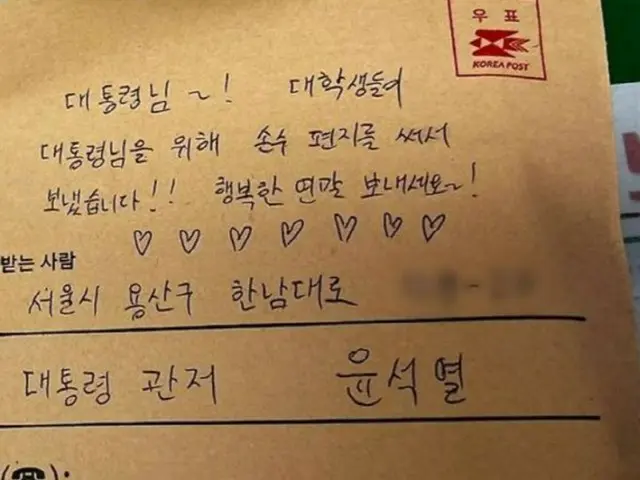 우표
KOREA POST
대통령님~! 대학생들이
대통령님을 위해 손수 편지를 써서
보냈습니다!! 행복한 연말 보내세요~!
♡ ♡ ♡ ♡ ♡ ♡ ♡
받는 사람
서울시 용산구 한남대로
대통령 관저 윤석열
(☎):